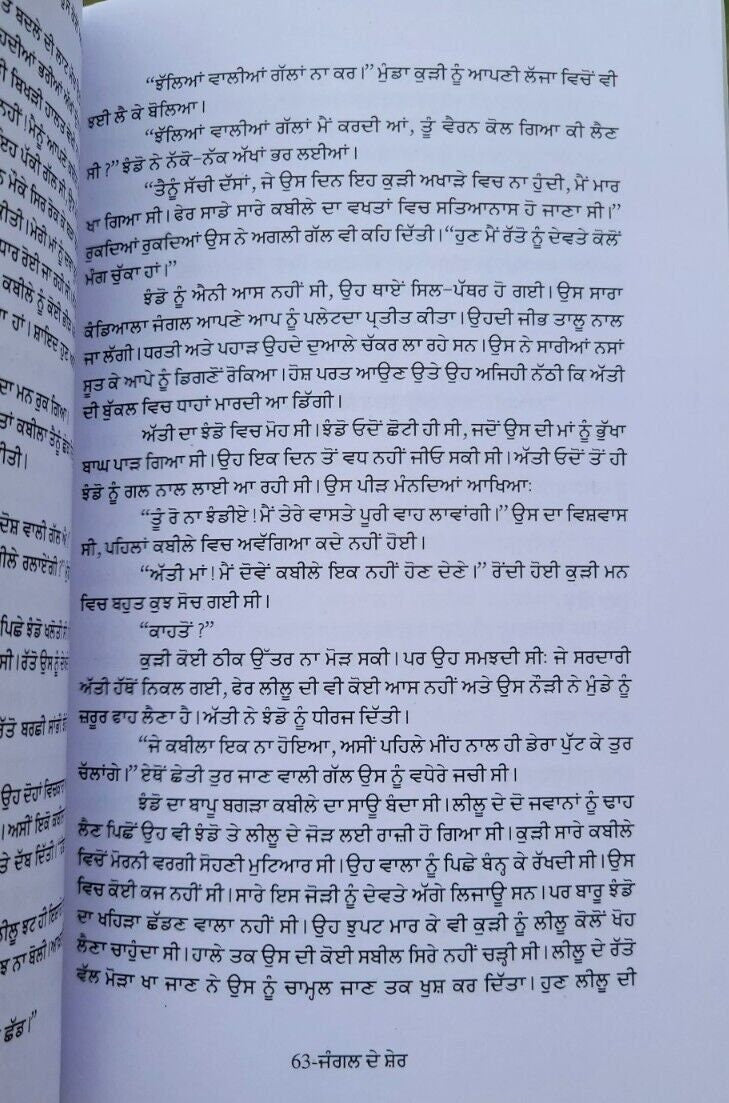 “ਝੱਲਿਆਂ ਵਾਲੀਆਂ ਗੱਲਾਂ ਨਾ ਕਰ।” ਮੁੰਡਾ ਕੁੜੀ ਨੂੰ ਆਪਣੀ ਲੱਜਾ ਵਿਚੋਂ ਵੀ
ਝਈ ਲੈ ਕੇ ਬੋਲਿਆ।
“ਝੱਲਿਆਂ ਵਾਲੀਆਂ ਗੱਲਾਂ ਮੈਂ ਕਰਦੀ ਆਂ, ਤੂੰ ਵੈਰਨ ਕੋਲ ਗਿਆ ਕੀ ਲੈਣ
ਸੀ ?” ਝੰਡੋ ਨੇ ਨੱਕੋ-ਨੱਕ ਅੱਖਾਂ ਭਰ ਲਈਆਂ।
“ਤੈਨੂੰ ਸੱਚੀ ਦੱਸਾਂ, ਜੇ ਉਸ ਦਿਨ ਇਹ ਕੁੜੀ ਅਖਾੜੇ ਵਿਚ ਨਾ ਹੁੰਦੀ, ਮੈਂ ਮਾਰ
ਖਾ ਗਿਆ ਸੀ। ਫੇਰ ਸਾਡੇ ਸਾਰੇ ਕਬੀਲੇ ਦਾ ਵਖਤਾਂ ਵਿਚ ਸਤਿਆਨਾਸ ਹੋ ਜਾਣਾ ਸੀ।”
ਰੁਕਦਿਆਂ ਰੁਕਦਿਆਂ ਉਸ ਨੇ ਅਗਲੀ ਗੱਲ ਵੀ ਕਹਿ ਦਿੱਤੀ। “ਹੁਣ ਮੈਂ ਰੱਤੋ ਨੂੰ ਦੇਵਤੇ ਕੋਲੋਂ
ਮੰਗ ਚੁੱਕਾ ਹਾਂ।”
ਝੰਡੋ ਨੂੰ ਐਨੀ ਆਸ ਨਹੀਂ ਸੀ, ਉਹ ਥਾਏਂ ਸਿਲ-ਪੱਥਰ ਹੋ ਗਈ। ਉਸ ਸਾਰਾ
ਕੰਡਿਆਲਾ ਜੰਗਲ ਆਪਣੇ ਆਪ ਨੂੰ ਪਲੇਟਦਾ ਪ੍ਰਤੀਤ ਕੀਤਾ। ਉਹਦੀ ਜੀਭ ਤਾਲੂ ਨਾਲ
ਜਾ ਲੱਗੀ। ਧਰਤੀ ਅਤੇ ਪਹਾੜ ਉਹਦੇ ਦੁਆਲੇ ਚੱਕਰ ਲਾ ਰਹੇ ਸਨ। ਉਸ ਨੇ ਸਾਰੀਆਂ ਨਸਾਂ
ਸੂਤ ਕੇ ਆਪੇ ਨੂੰ ਡਿਗਣੋਂ ਰੋਕਿਆ। ਹੋਸ਼ ਪਰਤ ਆਉਣ ਉਤੇ ਉਹ ਅਜਿਹੀ ਨੱਠੀ ਕਿ ਅੱਤੀ
ਦੀ ਬੁੱਕਲ ਵਿਚ ਧਾਹਾਂ ਮਾਰਦੀ ਆ ਡਿੱਗੀ।
ਅੱਤੀ ਦਾ ਝੰਡੋ ਵਿਚ ਮੋਹ ਸੀ। ਝੰਡੋ ਓਦੋਂ ਛੋਟੀ ਹੀ ਸੀ, ਜਦੋਂ ਉਸ ਦੀ ਮਾਂ ਨੂੰ ਭੁੱਖਾ
ਬਾਘ ਪਾੜ ਗਿਆ ਸੀ। ਉਹ ਇਕ ਦਿਨ ਤੋਂ ਵਧ ਨਹੀਂ ਜੀਓ ਸਕੀ ਸੀ। ਅੱਤੀ ਓਦੋਂ ਤੋਂ ਹੀ
ਝੰਡੋ ਨੂੰ ਗਲ ਨਾਲ ਲਾਈ ਆ ਰਹੀ ਸੀ। ਉਸ ਪੀੜ ਮੰਨਦਿਆਂ ਆਖਿਆ:
“ਤੂੰ ਰੋ ਨਾ ਝੰਡੀਏ! ਮੈਂ ਤੇਰੇ ਵਾਸਤੇ ਪੂਰੀ ਵਾਹ ਲਾਵਾਂਗੀ।” ਉਸ ਦਾ ਵਿਸ਼ਵਾਸ
ਸੀ, ਪਹਿਲਾਂ ਕਬੀਲੇ ਵਿਚ ਅਵੱਗਿਆ ਕਦੇ ਨਹੀਂ ਹੋਈ।
“ਅੱਤੀ ਮਾਂ! ਮੈਂ ਦੋਵੇਂ ਕਬੀਲੇ ਇਕ ਨਹੀਂ ਹੋਣ ਦੇਣੇ।” ਰੋਂਦੀ ਹੋਈ ਕੁੜੀ ਮਨ
ਵਿਚ ਬਹੁਤ ਕੁਝ ਸੋਚ ਗਈ ਸੀ।
“ਕਾਹਤੋਂ ?”
ਕੁੜੀ ਕੋਈ ਠੀਕ ਉੱਤਰ ਨਾ ਮੋੜ ਸਕੀ। ਪਰ ਉਹ ਸਮਝਦੀ ਸੀ: ਜੇ ਸਰਦਾਰੀ
ਅੱਤੀ ਹੱਥੋਂ ਨਿਕਲ ਗਈ, ਫੇਰ ਲੀਲੂ ਦੀ ਵੀ ਕੋਈ ਆਸ ਨਹੀਂ ਅਤੇ ਉਸ ਨੌੜੀ ਨੇ ਮੁੰਡੇ ਨੂੰ
ਜ਼ਰੂਰ ਫਾਹ ਲੈਣਾ ਹੈ। ਅੱਤੀ ਨੇ ਝੰਡੋ ਨੂੰ ਧੀਰਜ ਦਿੱਤੀ।
“ਜੇ ਕਬੀਲਾ ਇਕ ਨਾ ਹੋਇਆ, ਅਸੀਂ ਪਹਿਲੇ ਮੀਂਹ ਨਾਲ ਹੀ ਡੇਰਾ ਪੁੱਟ ਕੇ ਤੁਰ
ਚੱਲਾਂਗੇ।” ਏਥੋਂ ਛੇਤੀ ਤੁਰ ਜਾਣ ਵਾਲੀ ਗੱਲ ਉਸ ਨੂੰ ਵਧੇਰੇ ਜਚੀ ਸੀ।
ਝੰਡੋ ਦਾ ਬਾਪੂ ਬਗੜਾ ਕਬੀਲੇ ਦਾ ਸਾਊ ਬੰਦਾ ਸੀ। ਲੀਲੂ ਦੇ ਦੋ ਜਵਾਨਾਂ ਨੂੰ ਢਾਹ
ਲੈਣ ਪਿਛੋਂ ਉਹ ਵੀ ਝੰਡੋ ਤੇ ਲੀਲੂ ਦੇ ਜੋੜ ਲਈ ਰਾਜ਼ੀ ਹੋ ਗਿਆ ਸੀ। ਕੁੜੀ ਸਾਰੇ ਕਬੀਲੇ
ਵਿਚੋਂ ਮੋਰਨੀ ਵਰਗੀ ਸੋਹਣੀ ਮੁਟਿਆਰ ਸੀ। ਉਹ ਵਾਲਾ ਨੂੰ ਪਿਛੇ ਬੰਨ੍ਹ ਕੇ ਰੱਖਦੀ ਸੀ। ਉਸ
ਵਿਚ ਕੋਈ ਕਜ ਨਹੀਂ ਸੀ। ਸਾਰੇ ਇਸ ਜੋੜੀ ਨੂੰ ਦੇਵਤੇ ਅੱਗੇ ਲਿਜਾਊ ਸਨ। ਪਰ ਬਾਰੂ ਝੰਡੋ
ਦਾ ਖਹਿੜਾ ਛੱਡਣ ਵਾਲਾ ਨਹੀਂ ਸੀ। ਉਹ ਝੁਪਟ ਮਾਰ ਕੇ ਵੀ ਕੁੜੀ ਨੂੰ ਲੀਲੂ ਕੋਲੋਂ ਖੋਹ
ਲੈਣਾ ਚਾਹੁੰਦਾ ਸੀ। ਹਾਲੇ ਤਕ ਉਸ ਦੀ ਕੋਈ ਸਬੀਲ ਸਿਰੇ ਨਹੀਂ ਚੜ੍ਹੀ ਸੀ। ਲੀਲੂ ਦੇ ਰੱਤੋ
ਵੱਲ ਮੋੜਾ ਖਾ ਜਾਣ ਨੇ ਉਸ ਨੂੰ ਚਾਮ੍ਹਲ ਜਾਣ ਤਕ ਖੁਸ਼ ਕਰ ਦਿੱਤਾ। ਹੁਣ ਲੀਲੂ ਦੀ
63-ਜੰਗਲ ਦੇ ਸ਼ੇਰ